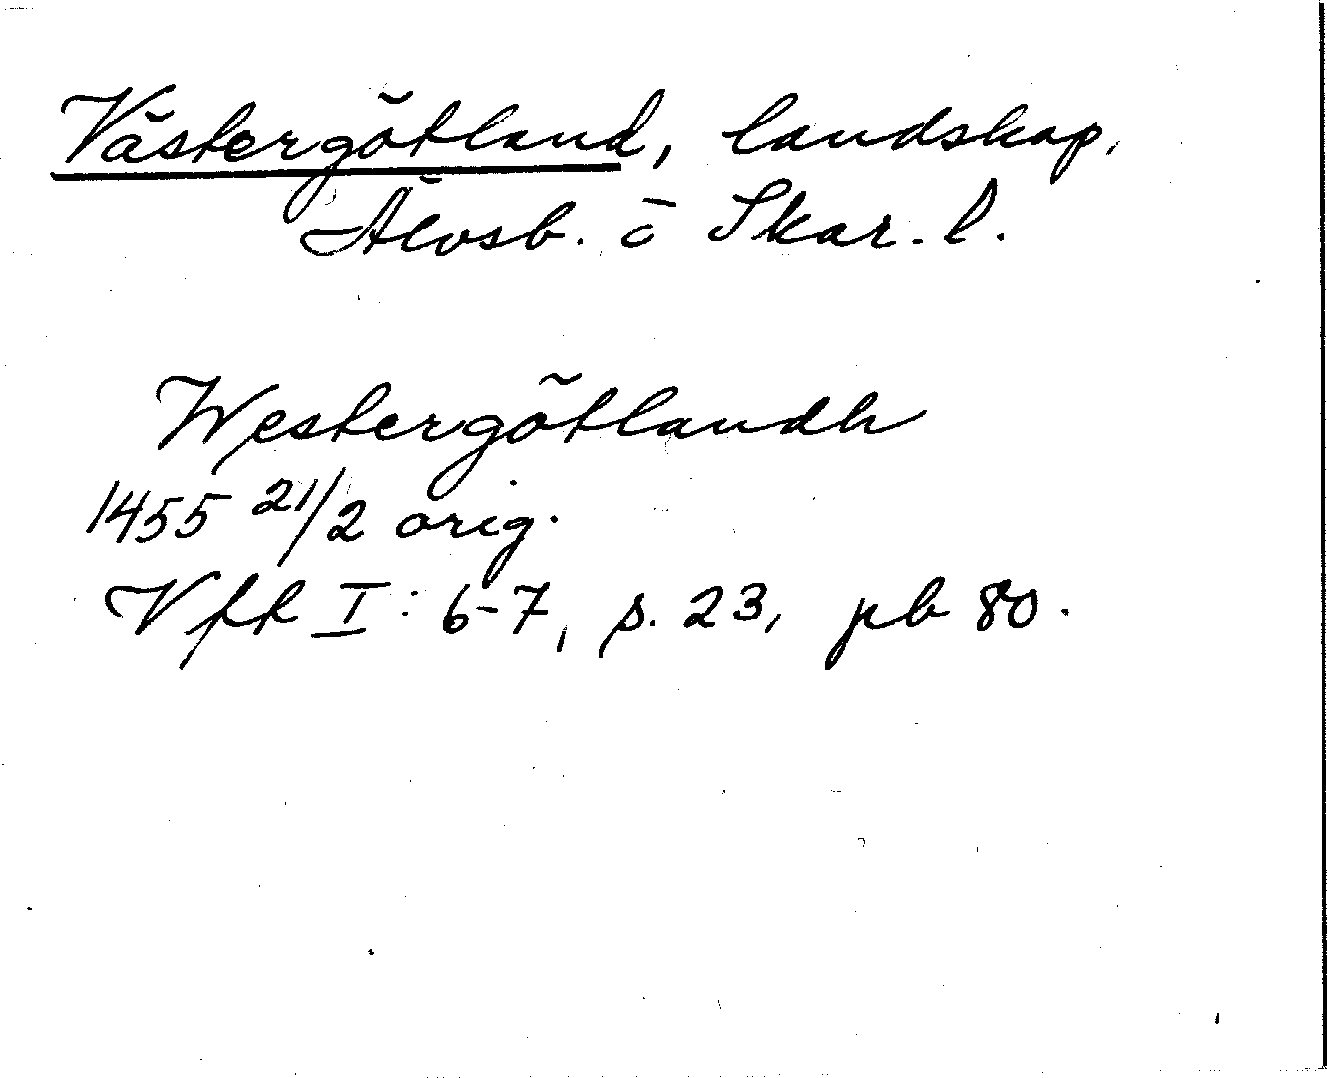 Västergötland, landskap,
Älvsb. o Skar. l.
Westergötlandh
1455 21/2 orig.
Vft I: 6-7, s. 23, pb 80.